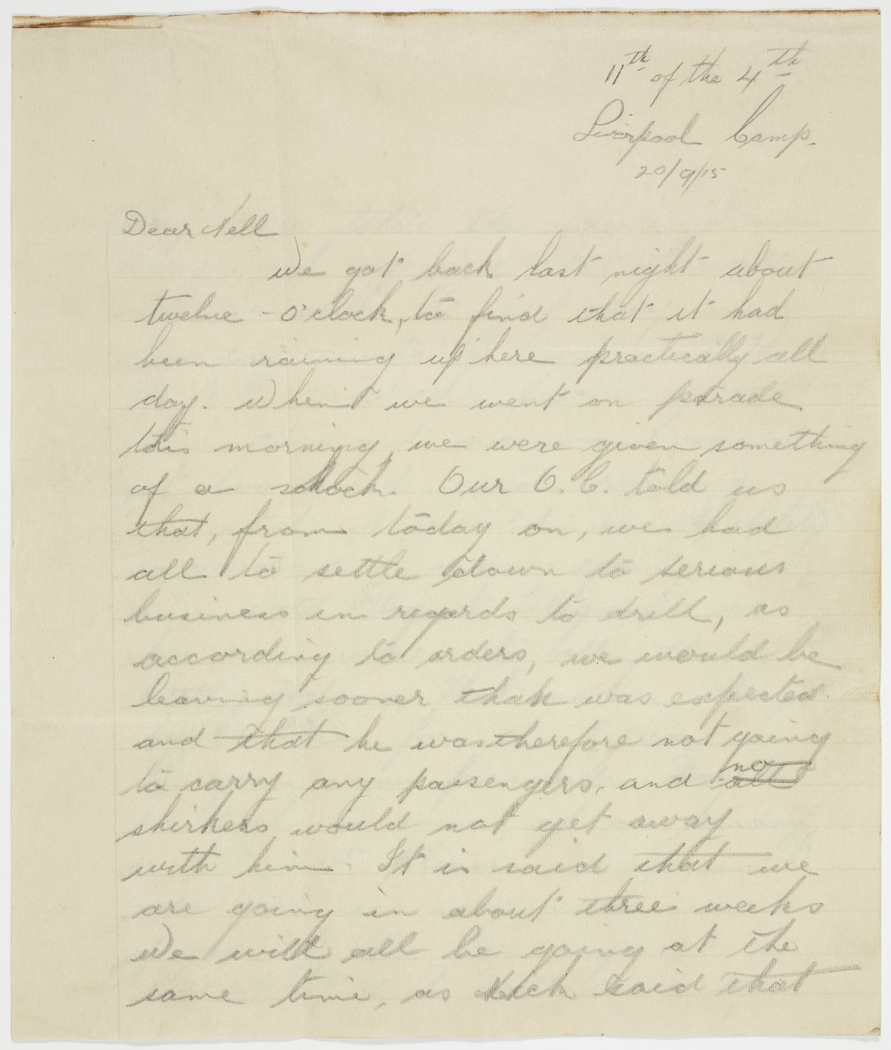 11th of the 4th
Liverpool Camp.
20/9/15
Dear Nell
We got back last night about
twelve - o'clock, to find that it had
been raining up here practically all
day. When we went on parade
this morning, we were given something
of a schock. Our O.C. told us
that, from today on, we had
all to settle down to serious
business in regards to drill, as
according to orders, we would be
leaving sooner than was expected
and that he was therefore not going
to carry any passengers, and no all
shirkers would not get away
with him. It is said that we
are going in about three weeks
We will all be going at the
same time, as said that